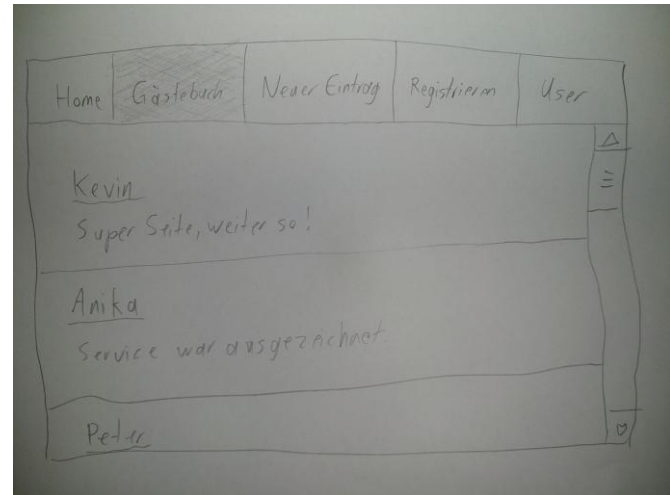 Home Gästebuch Neuer Eintrag Registrieren User
Kevin
Super Seite, weiter so!
Anika
Service war ausgezeichnet.
Peter